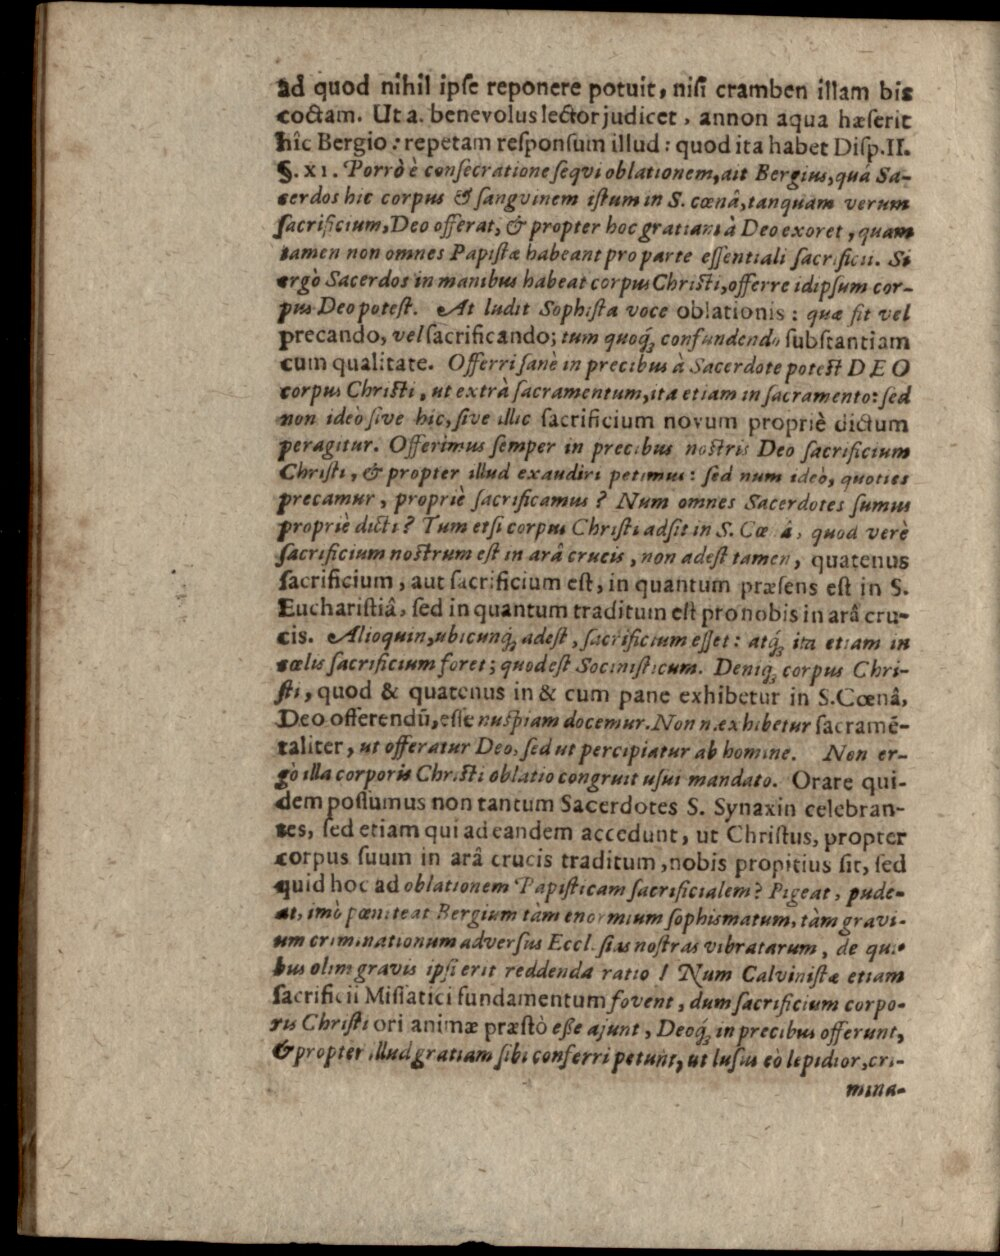 ad quod nihil ipſe reponere potuit, niſi cramben illam bis
coctam. Ut a. benevolus lector judicet, annon aqua hæſerit
hîc Bergio: repetam reſponſum illud: quod ita habet Diſp. II.
§. XI. Porrò è conſecratione ſeqvi oblationem, ait Bergius, quâ Sa-
cerdos hic corpus & ſangvinem iſtum in S. cœnâ, tanquam verum
ſacrificium, Deo offerat, & propter hoc gratiam à Deo exoret, quam
tamen non omnes Papiſtæ habeant pro parte eſſentiali ſacrificii. Si
ergò Sacerdos in manibus habeat corpus Chriſti, offerre idipſum cor-
pus Deo poteſt. At ludit Sophiſta voce oblationis: quæ fit vel
precando, vel ſacrificando; tum quoq́; confundendo ſubſtantiam
cum qualitate. Offerri ſanè in precibus à Sacerdote poteſt DEO
corpus Chriſti, ut extrà ſacramentum, ita etiam in ſacramento: ſed
non ideò ſive hic, ſive illic ſacrificium novum propriè dictum
peragitur. Offerimus ſemper in precibus noſtris Deo ſacrificium
Chriſti, & propter illud exaudiri petimus: ſed num ideò, quoties
precamur, propriè ſacrificamus? Num omnes Sacerdotes ſumus
propriè dicti? Tum etſi corpus Chriſti adſit in S. Cœnâ, quod verè
ſacrificium noſtrum eſt in arâ crucis, non adeſt tamen, quatenus
ſacrificium, aut ſacrificium eſt, in quantum præſens eſt in S.
Euchariſtiâ, ſed in quantum traditum eſt pro nobis in arâ cru-
cis. Alioquin, ubicunq́; adeſt, ſacrificium eſſet: atq́; ita etiam in
cœlis ſacrificium foret; quod eſt Sociniſticum. Deniq́; corpus Chri-
ſti, quod & quatenus in & cum pane exhibetur in S. Cœnâ,
Deo offerendũ, eſſe nuſpiam docemur. Non n. exhibetur ſacramẽ-
taliter, ut offeratur Deo, ſed ut percipiatur ab homine. Non er-
gò illa corporis Chriſti oblatio congruit uſui mandato. Orare qui-
dem poſſumus non tantum Sacerdotes S. Synaxin celebran-
tes, ſed etiam qui ad eandem accedunt, ut Chriſtus, propter
corpus ſuum in arâ crucis traditum, nobis propitius ſit, ſed
quid hoc ad oblationem Papiſticam ſacrificialem? Pigeat, pude-
at, imò pœniteat Bergium tàm enormium ſophismatum, tàm gravi-
um criminationum adverſus Eccleſias noſtras vibratarum, de qui-
bus olim gravis ipſi erit reddenda ratio! Num Calviniſtæ etiam
ſacrificii Miſſatici fundamentum fovent, dum ſacrificium corpo-
ris Chriſti ori animæ præſtò eſſe ajunt, Deoq́; in precibus offerunt,
& propter illud gratiam ſibi conferri petunt, ut luſus eò lepidior, cri-
mina-